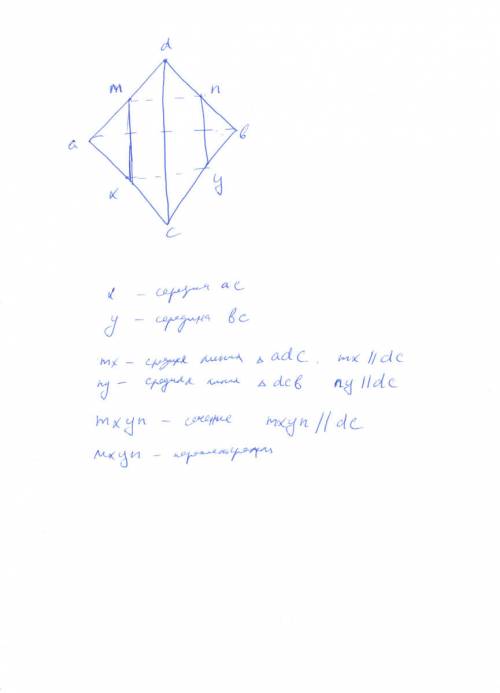 d
m n
a в
x y
c
x – середина ac
y – середина вc
mx – средняя линия △ adc. mx || dc
ny – средняя линия △ dcв ny || dc
mxyn – сечение mxyn || dc
mxyn – параллелограмм